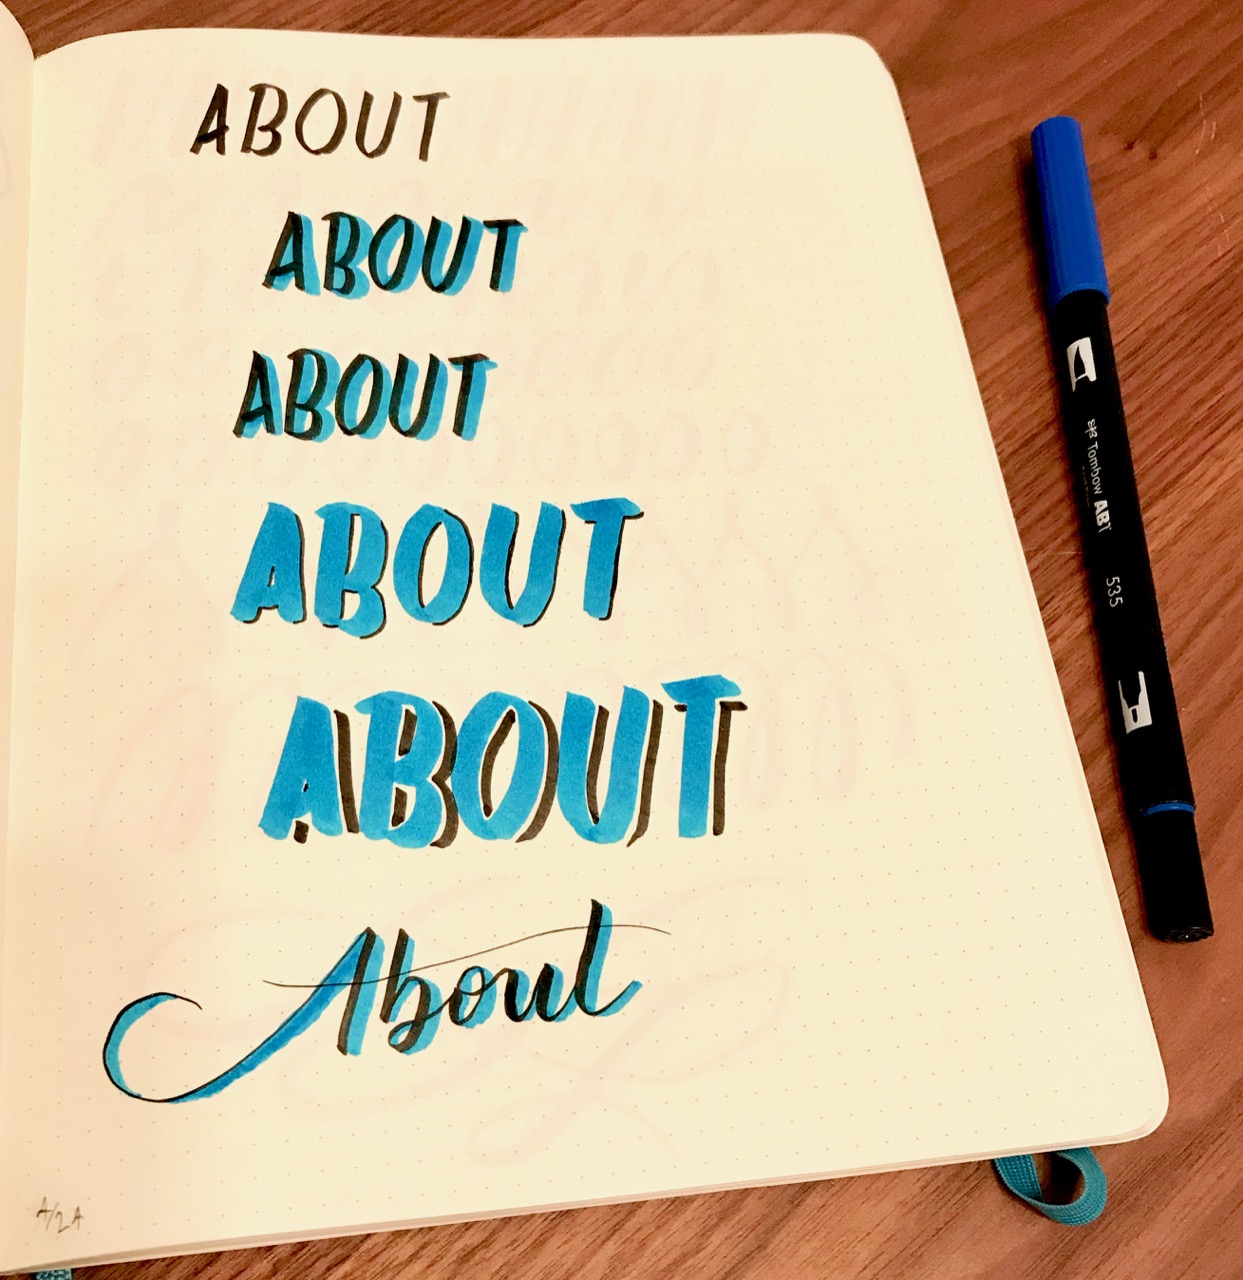 ABOUT
ABOUT
ABOUT
ABOUT
ABOUT
About
Tombow ABT
535